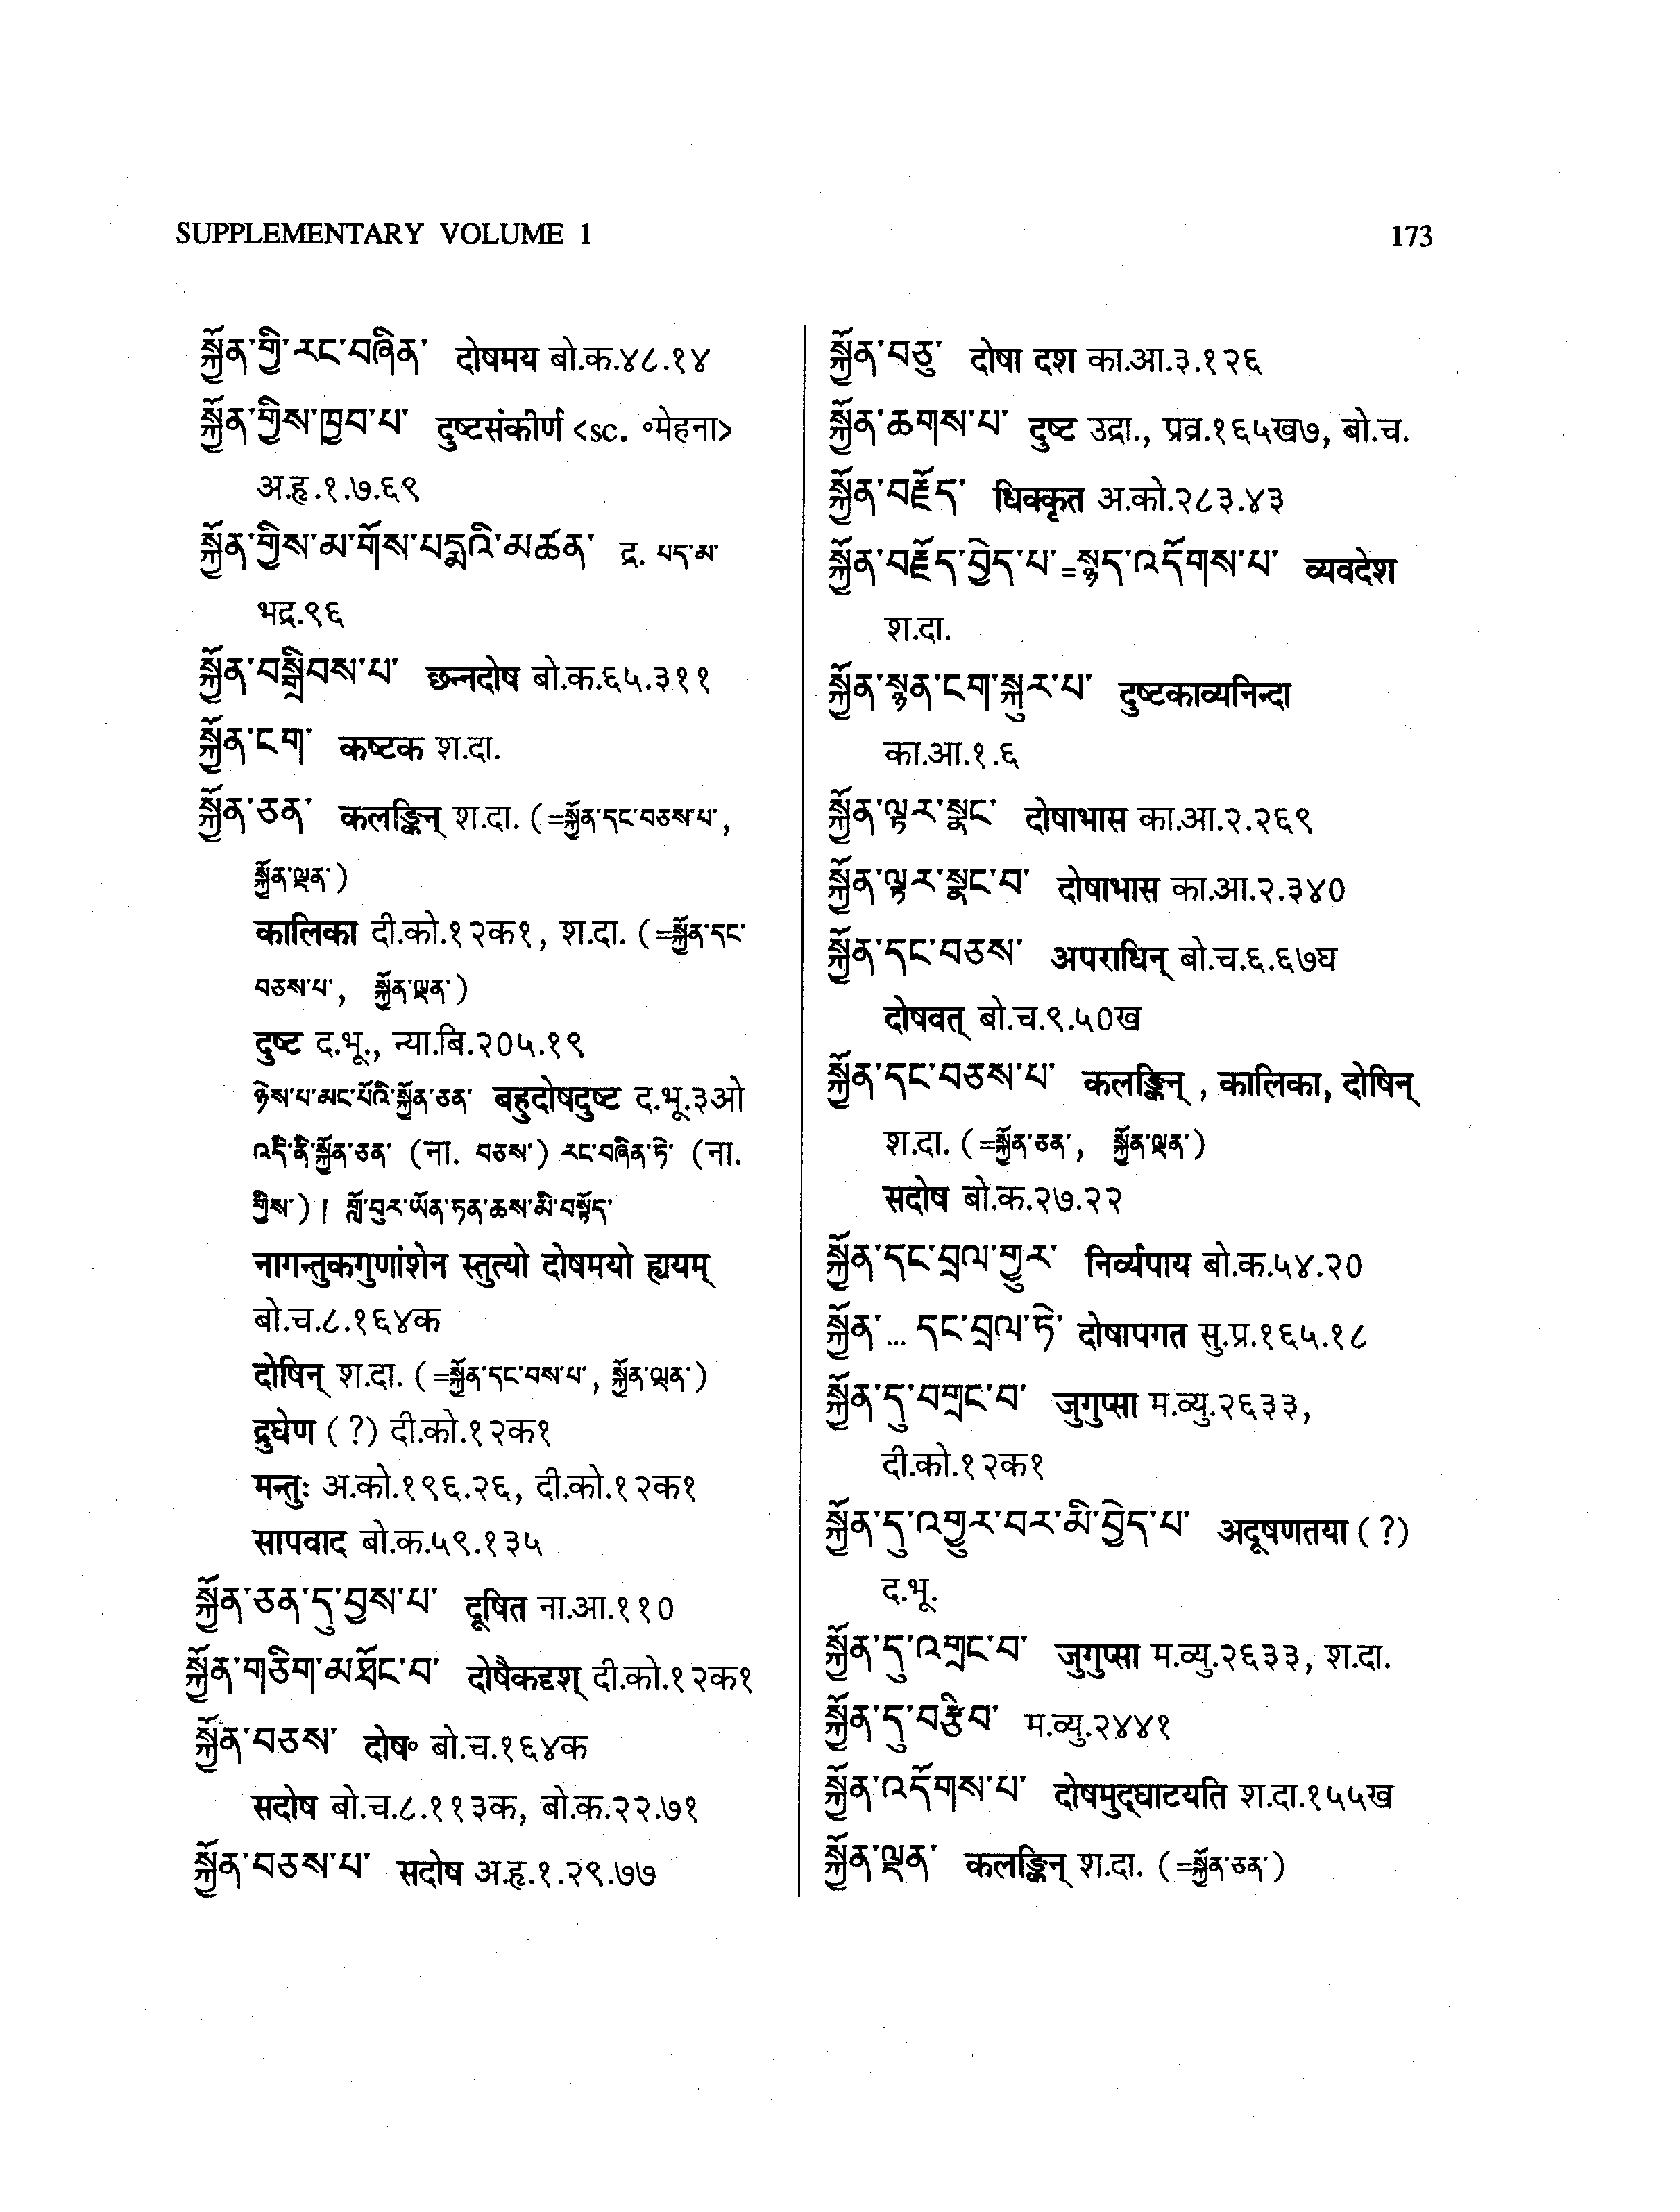 SUPPLEMENTARY VOLUME 1
173
སྐྱོན་གྱི་རང་བཞིན་ दोषमय बो.क.४८.१४
སྐྱོན་གྱིས་ཁྱབ་པ་ दुष्टसंकीर्ण <sc. ॰मेहना>
अ.हृ.१.७.६९
སྐྱོན་གྱིས་མ་གོས་པདྨའི་མཚན་ द्र. པད་མ་
भद्र.९६
སྐྱོན་བསྒྲིབས་པ་ छन्नदोष बो.क.६५.३११
སྐྱོན་ངག་ कष्टक श.दा.
སྐྱོན་ཅན་ कलङ्किन् श.दा. (=སྐྱོན་དང་བཅས་པ་,
སྐྱོན་ལྡན་)
कालिका दी.को.१२क१, श.दा. (=སྐྱོན་དང་
བཅས་པ་, སྐྱོན་ལྡན་)
दुष्ट द.भू., न्या.बि.२०५.१९
ཉེས་པ་མང་པོའི་སྐྱོན་ཅན་ बहुदोषदुष्ट द.भू.३ओ
འདི་ནི་སྐྱོན་ཅན་ (ना. བཅས་) རང་བཞིན་ཏེ་ (ना.
གྱིས་)། གློ་བུར་ཡོན་ཏན་ཆས་མི་བསྟོད་
नागन्तुकगुणांशेन स्तुत्यो दोषमयो ह्ययम्
बो.च.८.१६४क
दोषिन् श.दा. (=སྐྱོན་དང་བས་པ་, སྐྱོན་ལྡན་)
द्रुघेण (?) दी.को.१२क१
मन्तुः अ.को.१९६.२६, दी.को.१२क१
सापवाद बो.क.५९.१३५
སྐྱོན་ཅན་དུ་བྱས་པ་ दूषित ना.आ.११०
སྐྱོན་གཅིག་མཐོང་བ་ दोषैकदृश् दी.को.१२क१
སྐྱོན་བཅས་ दोष॰ बो.च.१६४क
सदोष बो.च.८.११३क, बो.क.२२.७१
སྐྱོན་བཅས་པ་ सदोष अ.हृ.१.२९.७७
སྐྱོན་བཅུ་ दोषा दश का.आ.३.१२६
སྐྱོན་ཆགས་པ་ दुष्ट उद्रा., प्रव्र.१६५ख७, बो.च.
སྐྱོན་བརྗོད་ धिक्कृत अ.को.२८३.४३
སྐྱོན་བརྗོད་བྱེད་པ་=སྙད་འདོགས་པ་ व्यवदेश
श.दा.
སྐྱོན་སྙན་ངག་སྐུར་པ་ दुष्टकाव्यनिन्दा
का.आ.१.६
སྐྱོན་ལྟར་སྣང་ दोषाभास का.आ.२.२६९
སྐྱོན་ལྟར་སྣང་བ་ दोषाभास का.आ.२.३४०
སྐྱོན་དང་བཅས་ अपराधिन् बो.च.६.६७घ
दोषवत् बो.च.९.५०ख
སྐྱོན་དང་བཅས་པ་ कलङ्किन् , कालिका, दोषिन्
श.दा. (=སྐྱོན་ཅན་, སྐྱོན་ལྡན་)
सदोष बो.क.२७.२२
སྐྱོན་དང་བྲལ་གྱུར་ निर्व्यपाय बो.क.५४.२०
སྐྱོན་... དང་བྲལ་ཏེ་ दोषापगत सु.प्र.१६५.१८
སྐྱོན་དུ་བགྲང་བ་ जुगुप्सा म.व्यु.२६३३,
दी.को.१२क१
སྐྱོན་དུ་འགྱུར་བར་མི་བྱེད་པ་ अदूषणतया (?)
द.भू.
སྐྱོན་དུ་འགྲང་བ་ जुगुप्सा म.व्यु.२६३३, श.दा.
སྐྱོན་དུ་བརྩིབ་ म.व्यु.२४४१
སྐྱོན་འདོགས་པ་ दोषमुद्घाटयति श.दा.१५५ख
སྐྱོན་ལྡན་ कलङ्किन् श.दा. (=སྐྱོན་ཅན་)